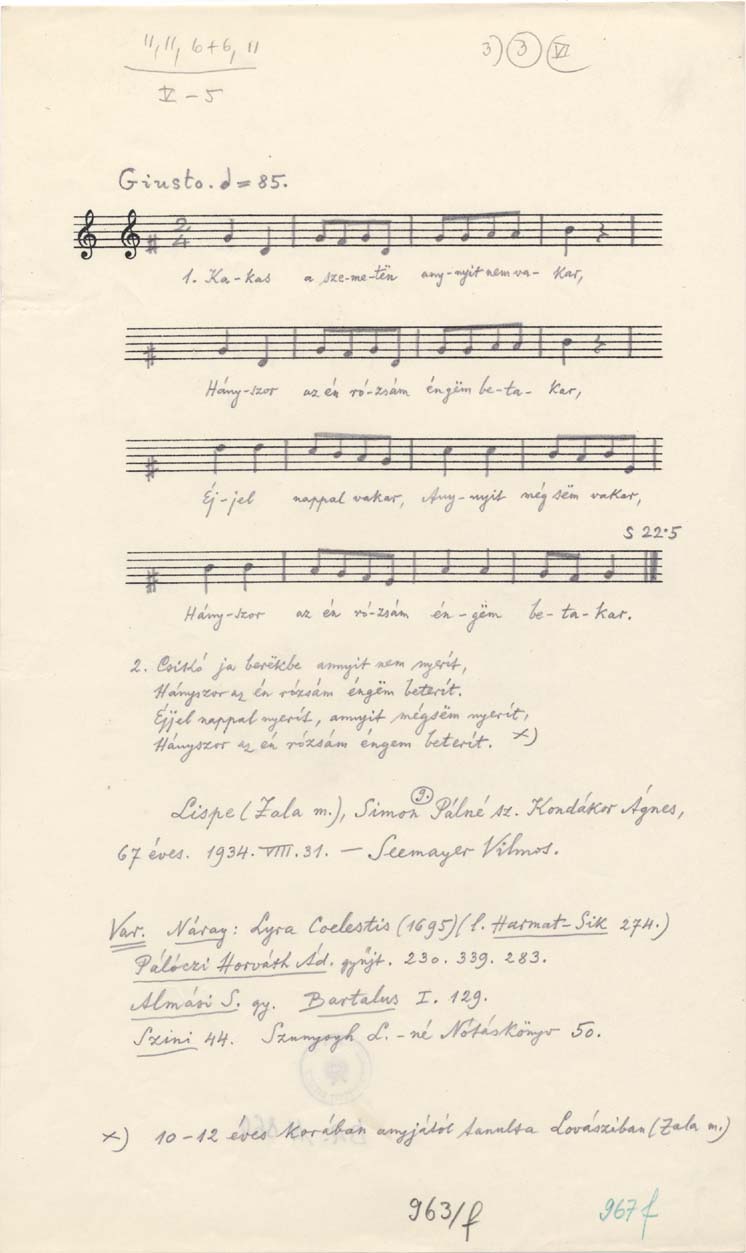 11, 11, 6+6, 11
V - 5
3) 3 VI
Giusto. d = 85.
2
4
1. Ka-kas a sze-me-tën any-nyit nem va- kar,
Hány-szor az én ró-zsám éngëm be-ta- kar,
Éj-jel nappal vakar, Any-nyit még sëm vakar,
S 22·5
Hány-szor az én ró-zsám én-gëm be-ta-kar.
2. Csikó ja berëkbe annyit nem nyerít,
Hányszor az én rózsám éngëm beterít.
Éjjel nappal nyerít, annyit mégsëm nyerít,
Hányszor az én rózsám éngem beterít. x)
Lispe (Zala m.), Simon g. Pálné sz. Kondákor Ágnes,
67 éves. 1934. VIII. 31. — Seemayer Vilmos.
Var. Náray: Lyra Coelestis (1695) (l. Harmat-Sik 274.)
Pálóczi Horváth Ád. gyűjt. 230. 339. 283.
Almási S. gy. Bartalus I. 129.
Szini 44. Szunyogh L.-né Nótáskönyv 50.
x) 10-12 éves korában anyjától tanulta Lovásziban (Zala m.)
963/f
967 f